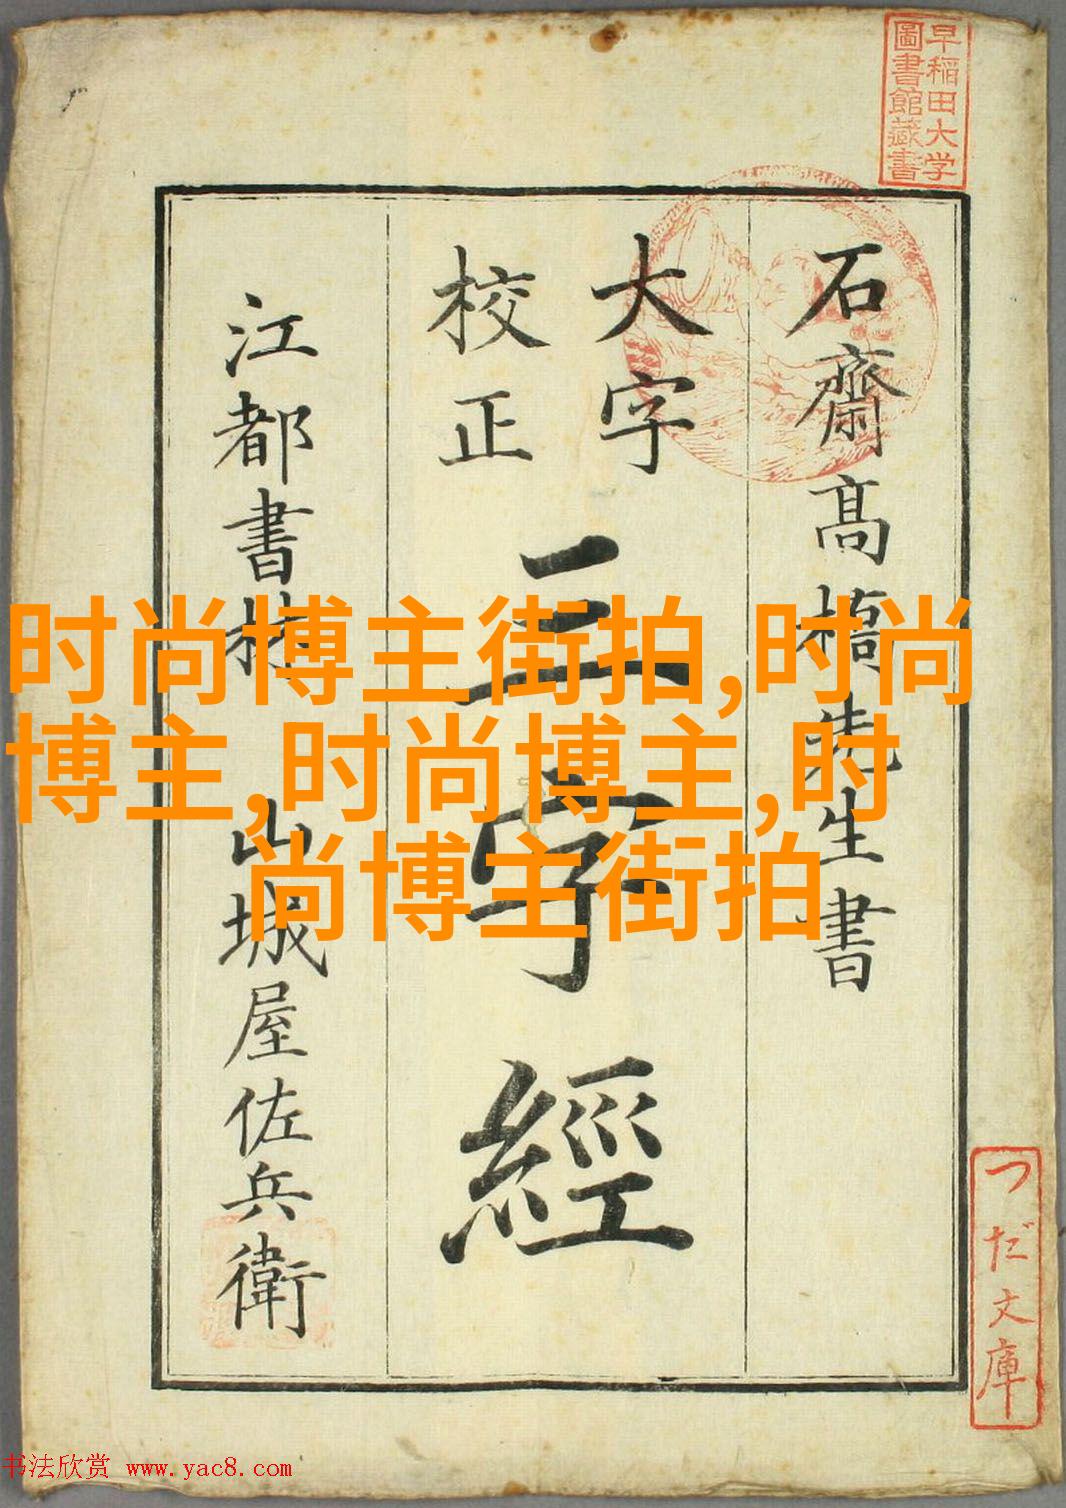 早稲田大学
圖書館藏書
石齋髙橋先生書
大字
校正
三字經
江都書林 山城屋佐兵衛
つだ文庫
时尚博主街拍,时尚
博主,时尚博主,时
尚博主街拍
书法欣赏 www.yac8.com